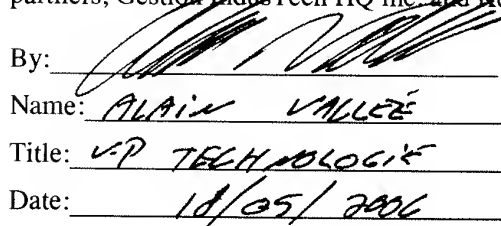 partners, Gestion IndusTech HQ inc. and
By:
Name: ALAIN VALLÉE
Title: V-P TECHNOLOGIE
Date: 18/05/2006